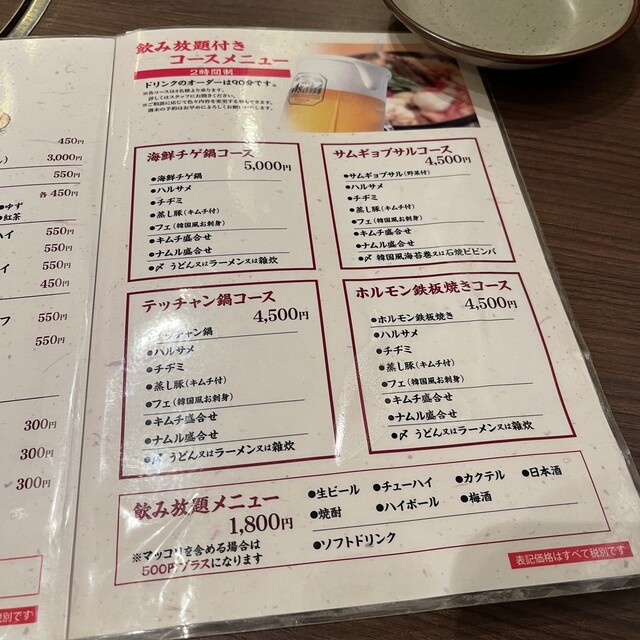 450円
3,000円
550円
各 450円
●ゆず
●紅茶
ハイ 550円
550円
イ 550円
450円
フ 550円
550円
300円
300円
300円
税別です
飲み放題付き
コースメニュー
2時間制
ドリンクのオーダーは90分です。
※各コースは4名様より承ります。
詳しくはスタッフにお聞きください。
※ご相談に応じて色々内容を変更する事もできます。
週末の予約はお早めによろしくお願いいたします。
Asahi
海鮮チゲ鍋コース
5,000円
●海鮮チゲ鍋
●ハルサメ
●チヂミ
●蒸し豚(キムチ付)
●フェ(韓国風お刺身)
●キムチ盛合せ
●ナムル盛合せ
●〆 うどん又はラーメン又は雑炊
サムギョプサルコース
4,500円
●サムギョプサル(野菜付)
●ハルサメ
●チヂミ
●蒸し豚(キムチ付)
●フェ(韓国風お刺身)
●キムチ盛合せ
●ナムル盛合せ
●〆 韓国風海苔巻又は石焼ビビンバ
テッチャン鍋コース
4,500円
●テッチャン鍋
●ハルサメ
●チヂミ
●蒸し豚(キムチ付)
●フェ(韓国風お刺身)
●キムチ盛合せ
●ナムル盛合せ
●〆 うどん又はラーメン又は雑炊
ホルモン鉄板焼きコース
4,500円
●ホルモン鉄板焼き
●ハルサメ
●チヂミ
●蒸し豚(キムチ付)
●フェ(韓国風お刺身)
●キムチ盛合せ
●ナムル盛合せ
●〆 うどん又はラーメン又は雑炊
飲み放題メニュー
1,800円
※マッコリを含める場合は
500円プラスになります
●生ビール ●チューハイ ●カクテル ●日本酒
●焼酎 ●ハイボール ●梅酒
●ソフトドリンク
表記価格はすべて税別です